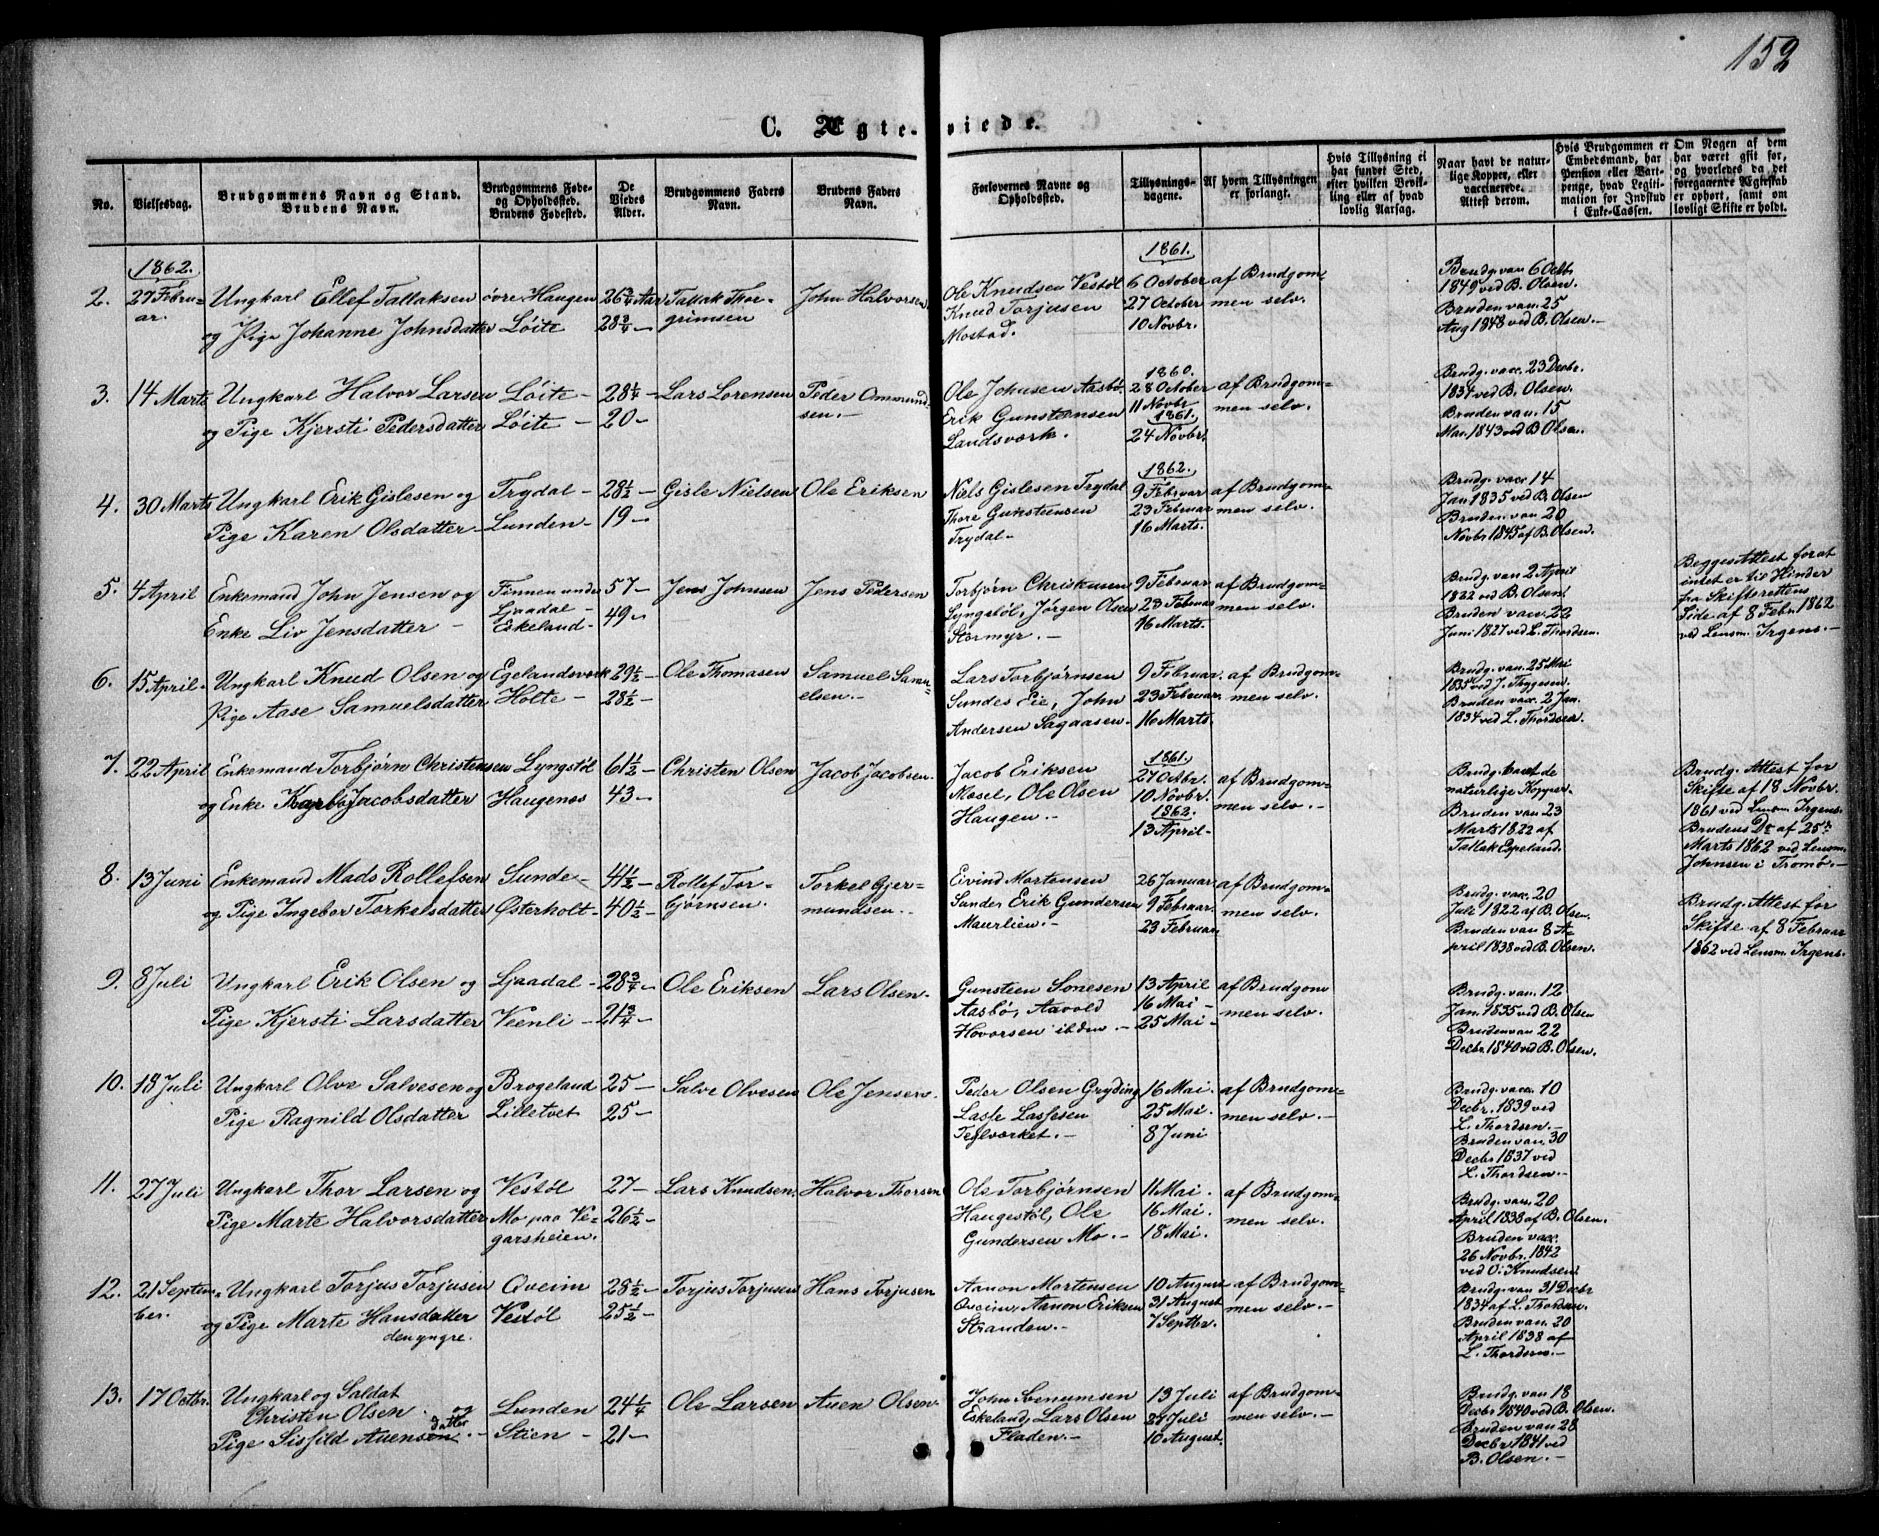 152
C. Ægte-viede.
No.
Vielsesdag.
Brudgommens Navn og Stand.
Brudens Navn.
Brudgommens Føde-
og Opholdssted.
Brudens Fødested.
De
Viedes
Alder.
Brudgommens Faders
Navn.
Brudens Faders
Navn.
Forlovernes Navne og
Opholdssted.
Tillysnings-
dagene.
Af hvem Tillysningen
er forlangt.
Hvis Tillysning ei
har fundet Sted,
efter hvilken Bevil-
ling eller af hvad
lovlig Aarsag.
Naar havt de natur-
lige Kopper, eller
vaccinerede.
Attest derom.
Hvis Brudgommen er
Embedsmand, har
Pension eller Vart-
penge, hvad Legiti-
mation for Indskud
i Enke-Cassen.
Om Nogen af dem
har været gift før,
og hvorledes da det
foregaaende Ægteskab
er ophørt, samt om
lovligt Skifte er holdt.
1862.
2. 27 Febru-
ar.
Ungkarl Ellef Tallaksen
og Pige Johanne Johnsdatter
øvre Haugen
Löite
26 3/4 Aar
28 3/4 –
Tallak Thor-
grimsen
John Halvorsen
Ole Knudsen Vestöl
Knud Torjusen
Mostad.
1861.
6 October
27 October
10 Novbr.
af Brudgom-
men selv.
Brudg. van 6 Octb.
1849 ved B. Olsen.
Bruden van. 25
Aug 1848 ved B. Olsen.–
3. 14 Marts
Ungkarl Halvor Larsen
og Pige Kjersti Pedersdatter
Löite –
Löite –
28 1/4 –
20 –
Lars Lorensen
Peder Ommund-
sen.–
Ole Johnsen Aasbö
Erik Gunstensen
Landsverk.
1860.
28 October
11 Novbr
1861.
24 Novbr.
af Brudgom-
men selv.
Brudg. vac. 23 Decbr.
1837 ved B. Olsen.
Bruden van. 15
Mai 1843 ved B Olsen.
4. 30 Marts
Ungkarl Erik Gislesen og
Pige Karen Olsdatter –
Trydal –
Lunden –
28 1/2 –
19 –
Gisle Nielsen
Ole Eriksen
Niels Gislesen Trydal
Thore Gunsteensen
Trydal –
1862.
9 Februar
23 Februar
16 Marts.
af Brudgom-
men selv.
Brudg. vac. 14
Jan. 1835 ved B. Olsen
Bruden van. 20
Novbr 1845 af B. Olsen.
5. 4 April
Enkemand John Jensen og
Enke Liv Jensdatter –
Fennen under
Ljaadal –
Eskeland –
57 –
49 –
Jens Johnsen
Jens Pedersen
Torbjörn Christensen
Lyngstöl, Jörgen Olsen
Stormyr. –
9 Februar
23 Februar
16 Marts.
af Brudgom-
men selv.
Brudg. van 2 April
1822 ved B. Olsen.
Bruden van. 22
Juni 1827 ved L. Thordsen.
Begges Attest for at
intet er til Hinder
fra Skifterettens
Side af 8 Febr. 1862
ved Lensm. Irgens.–
6. 15 April.
Ungkarl Knud Olsen og
Pige Aase Samuelsdatter
Egelandsverk
Holte –
29 1/2 –
28 1/2 –
Ole Thomasen
Samuel Samu-
elsen.–
Lars Torbjörnsen
Sundes Eie, John
Andersen Sagaasen.
9 Februar
23 Februar.
16 Marts.
af Brudgom-
men selv.
Brudg. van. 25 Mai
1835 ved J. Thygesen.
Bruden vac. 2 Jan.
1834 ved L. Thordsen.
7. 22 April
Enkemand Torbjörn Christensen
og Enke Karbo Jacobsdatter
Lyngstöl
Haugenæs
61 1/2 –
43 –
Christen Olsen
Jacob Jacobsen.
Jacob Eriksen
Mosel, Ole Olsen
Haugen. –
1861.
27 Octbr.
10 Novbr.
1862.
13 April –
af Brudgom-
men selv. –
Brudg. havt de
naturlige Kopper.
Bruden van. 23
Marts 1822 af
Tallak Espeland.
Brudg. Attest for
Skifte af 18 Novbr.
1861 ved Lensm. Irgens.
Brudens Do af 25de
Marts 1862 ved Lensm.
Johnsen i Tromö.–
8. 13 Juni
Enkemand Mads Rollefsen
og Pige Ingebor Torkelsdatter
Sunde –
Østerholt –
41 1/2 –
40 1/2 –
Rollef Tor-
björnsen.
Torkel Gjer-
mundsen.–
Eivind Mortensen
Sunde, Erik Gundersen
Maurlien. –
26 Januar
9 Februar.
23 Februar.
af Brudgom-
men selv.
Brudg. vac. 20
Juli 1822 af B. Olsen.
Bruden van 8 A-
pril 1838 ved B. Olsen.
Brudg. Attest for
Skifte af 8 Februar
1862 ved Lensm. Irgens.
9. 8 Juli
Ungkarl Erik Olsen og
Pige Kjersti Larsdatter
Ljaadal –
Veenli –
28 3/4 –
21 3/4 –
Ole Eriksen
Lars Olsen.
Gunsteen Sonesen
Aasbö, Aavold
Hovorsen ibden –
13 April
16 Mai –
25 Mai –
af Brudgom
men selv.
Brudg. van. 12
Jan. 1835 ved B. Olsen
Bruden van 22
Decbr. 1840 ved B. Olsen.
10. 18 Juli
Ungkarl Olve Salvesen og
Pige Ragnild Olsdatter
Brogeland
Lilletvet
25 –
25 –
Salve Olvesen
Ole Jensen.
Peder Olsen Gryding
Lasse Lassesen
Teglverket. –
16 Mai
25 Mai.
8 Juni
af Brudgom-
men selv. –
Brudg. vac. 10
Decbr. 1839 ved
L. Thordsen.–
Bruden van. 30
Decbr 1837 ved
L. Thordsen.–
11. 27 Juli
Ungkarl Thor Larsen og
Pige Marte Halvorsdatter
Vestöl
Mo, paa Ve-
garsheien.
27 –
26 1/2 –
Lars Knudsen.
Halvor Thorsen
Ole Torbjörnsen
Haugestöl, Ole
Gundersen Mo. –
11 Mai.
16 Mai.
18 Mai.
af Brudgom-
men selv.
Brudg. van. 20
April 1838 af B. Olsen.
Bruden vac.
26 Novbr. 1842
ved O. Knudsen.
12. 21 Septem-
ber.
Ungkarl Torjus Torjusen
og Pige Marte Hansdatter
den yngre.
Oveim
Vestöl
28 1/2 –
25 1/2 –
Torjus Torjusen
Hans Torjusen
Aanon Mortensen
Oveim, Aanon Eriksen
Stranden. –
10 August
31 August
7 Septbr.
af Brudgom-
men selv. –
Brudg. van. 31 Decbr
1834 af L. Thordsen.
Bruden van. 20
April 1838 af
L. Thordsen.–
13. 17 Octbr.
Ungkarl og Soldat
Christen Olsen. og
Pige Sisfild Auensen datter. –
Lunden
Stien –
24 1/4
21 –
Ole Larsen
Auen Olsen.
John Aanumsen
Eskeland, Lars Olsen
Fladen. –
13 Juli
27 Juli
10 August.
af Brudgom.
men selv. –
Brudg. van 18
Decbr 1840 ved B. Olsen.
Bruden van 28
Decbr 1841 ved
B. Olsen. –